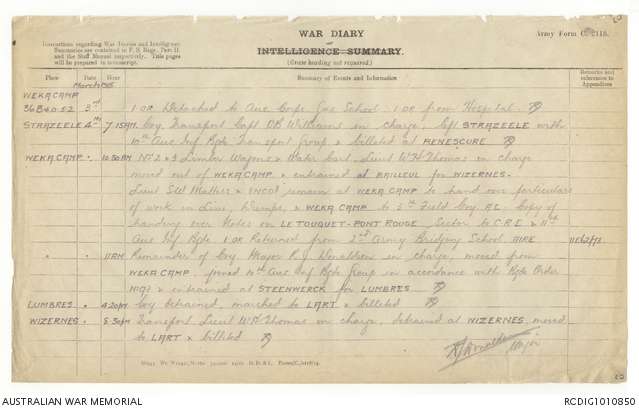 WAR DIARY
or
INTELLIGENCE SUMMARY.
(Erase heading not required.)
Army Form C. 2118.
Instructions regarding War Diaries and Intelligence
Summaries are contained in F. S. Regs., Part II.
and the Staff Manual respectively. Title pages
will be prepared in manuscript.
Place Date Hour Summary of Events and Information Remarks and references to Appendices
March
WEKA CAMP
36B40.52 3rd 1 OR Detached to Aus Corps Gas School. 1 OR from Hospital.
STRAZEELE 4th 7.15AM Coy Transport Capt DB Williams in charge, left STRAZEELE with
10th Aus Inf Bgde Transport Group & billeted at RENESCURE
WEKA CAMP 10.30AM No 2 & 3 Limber Wagons & Water Cart, Lieut WH Thomas in charge
moved out of WEKA CAMP & entrained at BAILLEUL for WIZERNES.
Lieut SW Matters & 1NCO remain at WEKA CAMP to hand over particulars
of work in Line, Dumps, & WEKA CAMP to 5th Field Coy AE. Copy of
handing over Notes on LE TOUQUET-PONT ROUGE Sector to CRE & 11th
Aus Inf Bgde 1 OR Returned from 2nd Army Bridging School AIRE
" " 11AM Remainder of Coy Major RJ Donaldson in charge, moved from
WEKA CAMP, joined 10th Aus Inf Bgde Group in accordance with Bgde Order
& entrained at STEENWERCK for LUMBRES
LUMBRES " 4.20pm Coy detrained, marched to LART & billeted
WIZERNES " 5.30pm Transport Lieut WH Thomas in charge, detrained at WIZERNES, moved
to LART & billeted
Major
AUSTRALIAN WAR MEMORIAL
RCDIG1010850